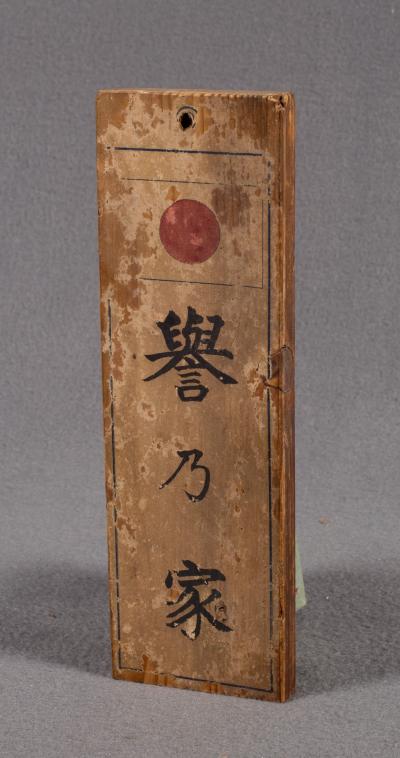 譽乃家